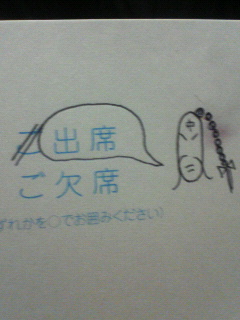 ご出席
ご欠席
ずれかを○でお囲みください）